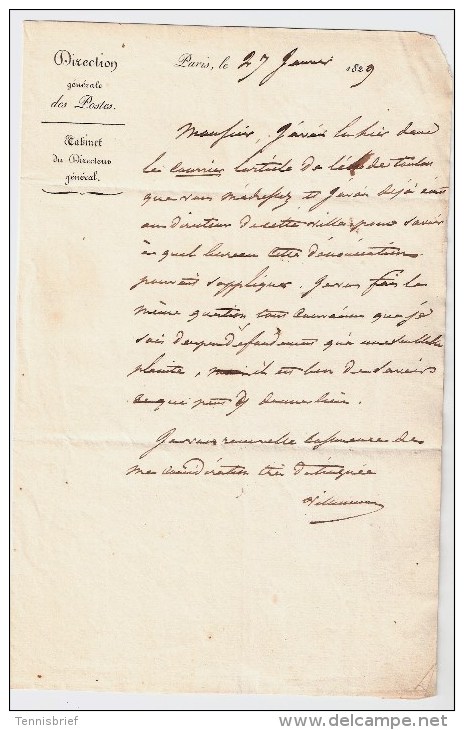 Direction
générale
des Postes.
Cabinet
du Directeur
général.
Paris, le 27 Janvier 1829
Monsieur, J'avais lu hier dans
le courrier l'article de l'
que vous m'adressez et J'avais déjà écrit
au directeur de cette ville pour savoir
à quel bureau cette dénonciation
pouvait s'appliquer. Je vous fais la
même question tout convaincu que je
sois du peu de fondement qu'a une semblable
plainte, mais il est bon de savoir
ce qui peut y donner lieu.
Je vous renouvelle l'assurance de
ma considération très distinguée
Villeneuve
Tennisbrief
delcampe.net